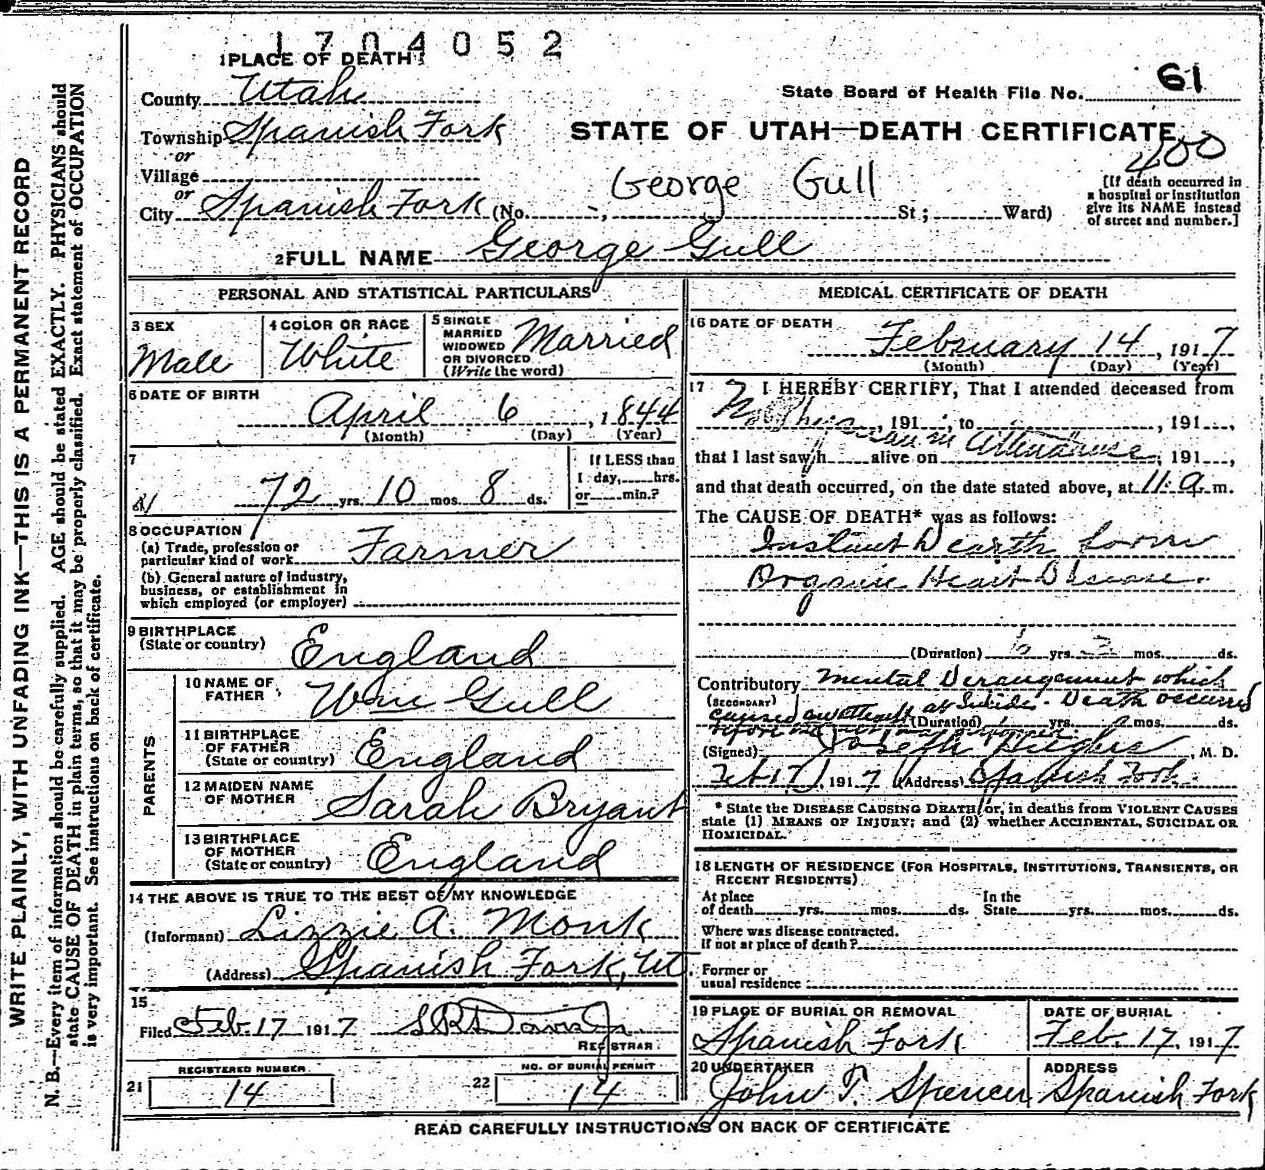 1704052
1 PLACE OF DEATH
County Utah
State Board of Health File No. 61
Township Spanish Fork
STATE OF UTAH—DEATH CERTIFICATE
or
400
Village
George Gull
or
City Spanish Fork (No. -, St.; Ward)
[If death occurred in
a hospital or institution
give its NAME instead
of street and number.]
2 FULL NAME George Gull
PERSONAL AND STATISTICAL PARTICULARS
3 SEX
Male
4 COLOR OR RACE
White
5 SINGLE
MARRIED
WIDOWED
OR DIVORCED
(Write the word)
Married
6 DATE OF BIRTH
April 6, 1844
(Month) (Day) (Year)
7
72 yrs. 10 mos. 8 ds.
If LESS than
1 day, hrs.
or min.?
8 OCCUPATION
(a) Trade, profession or
particular kind of work Farmer
(b) General nature of industry,
business, or establishment in
which employed (or employer)
9 BIRTHPLACE
(State or country) England
PARENTS
10 NAME OF
FATHER Wm Gull
11 BIRTHPLACE
OF FATHER
(State or country) England
12 MAIDEN NAME
OF MOTHER Sarah Bryant
13 BIRTHPLACE
OF MOTHER
(State or country) England
14 THE ABOVE IS TRUE TO THE BEST OF MY KNOWLEDGE
(Informant) Lizzie A. Monk
(Address) Spanish Fork, Ut.
15
Filed Feb. 17 1917
REGISTRAR
21
REGISTERED NUMBER
14
22
NO. OF BURIAL PERMIT
14
MEDICAL CERTIFICATE OF DEATH
16 DATE OF DEATH
February 14, 1917
(Month) (Day) (Year)
17 I HEREBY CERTIFY, That I attended deceased from
No Physician in Attendance
, 191 , to , 191 ,
that I last saw h alive on , 191 ,
and that death occurred, on the date stated above, at 11 a m.
The CAUSE OF DEATH* was as follows:
Instant Death from
Organic Heart Disease.
(Duration) yrs. mos. ds.
Contributory Mental Derangement which
(SECONDARY)
caused an attempt at Suicide. Death occurred
(Duration) yrs. mos. ds.
before
(Signed) Joseph Hughes, M. D.
Feb 17, 1917 (Address) Spanish Fork.
* State the DISEASE CAUSING DEATH, or, in deaths from VIOLENT CAUSES
state (1) MEANS OF INJURY; and (2) whether ACCIDENTAL, SUICIDAL OR
HOMICIDAL.
18 LENGTH OF RESIDENCE (FOR HOSPITALS, INSTITUTIONS, TRANSIENTS, OR
RECENT RESIDENTS)
At place
of death yrs. mos. ds.
In the
State yrs. mos. ds.
Where was disease contracted.
If not at place of death?
Former or
usual residence
19 PLACE OF BURIAL OR REMOVAL
Spanish Fork
DATE OF BURIAL
Feb. 17, 1917
20 UNDERTAKER
John T. Spencer
ADDRESS
Spanish Fork
READ CAREFULLY INSTRUCTIONS ON BACK OF CERTIFICATE
WRITE PLAINLY, WITH UNFADING INK—THIS IS A PERMANENT RECORD
N. B.—Every item of information should be carefully supplied. AGE should be stated EXACTLY. PHYSICIANS should
state CAUSE OF DEATH in plain terms, so that it may be properly classified. Exact statement of OCCUPATION
is very important. See instructions on back of certificate.